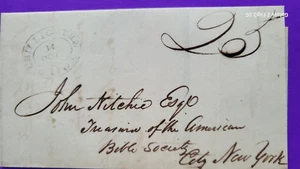 25
John Ritchie Esq
Treasurer of the American
Bible Society
City New York